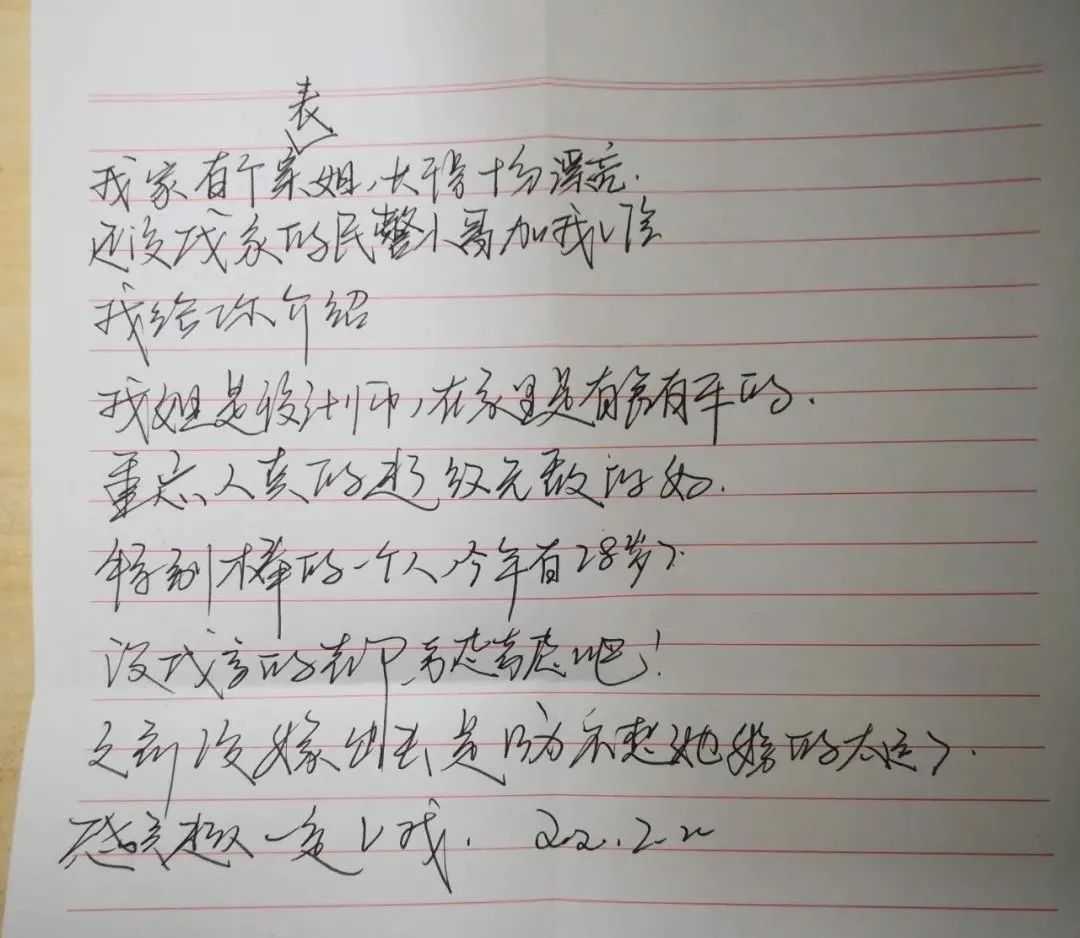 表
我家有个家姐,长得十分漂亮.
还没成家的民警小哥加我V哈
我给你介绍
我姐是设计师,在家里是有房有车的.
重点人真的超级无敌的好.
特别棒的一个人,今年有28岁了
没成家的老师考虑考虑吧!
之前没嫁出去是因为不想她嫁的太远了.
感兴趣一定V我. 22.2.2